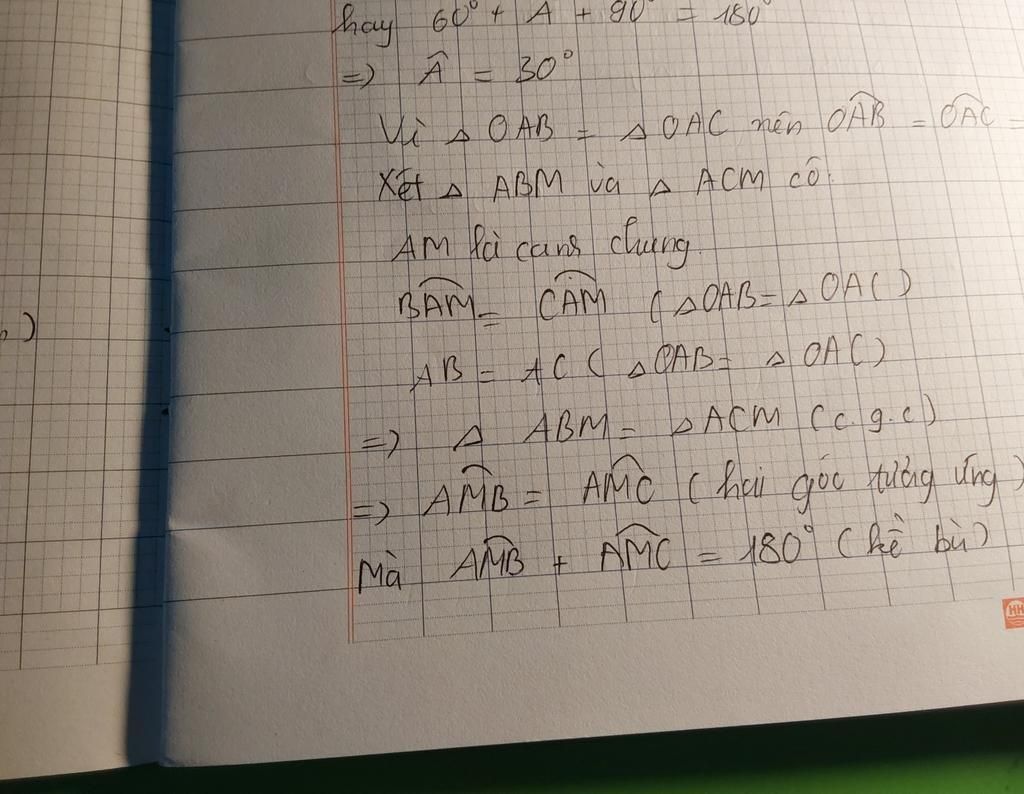 hay 60° + A + 90° = 180°
=) Â = 30°
Vì △ OAB = △ OAC nên OÂB = OÂC =
Xét △ ABM và △ ACM có:
AM là canh chung
BÂM = CÂM (△OAB = △OAC)
)
AB = AC (△OAB = △OAC)
=) △ ABM = △ACM (c.g.c)
=) AM̂B = AM̂C (hai góc tương ứng)
Mà AM̂B + AM̂C = 180° (kề bù)
HH